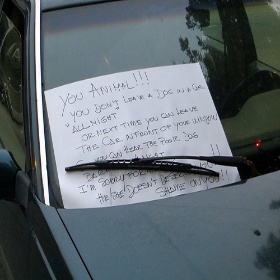 YOU ANIMAL!!!
YOU DON'T LEAVE A DOG IN A CAR
"ALL NIGHT"
OR NEXT TIME YOU CAN LEAVE
THE CAR IN FRONT OF YOUR WINDOW
SO YOU CAN HEAR THE POOR DOG
I'M SORRY FOR
THE DOG DOESN'T !!
SHAME ON YOU!!